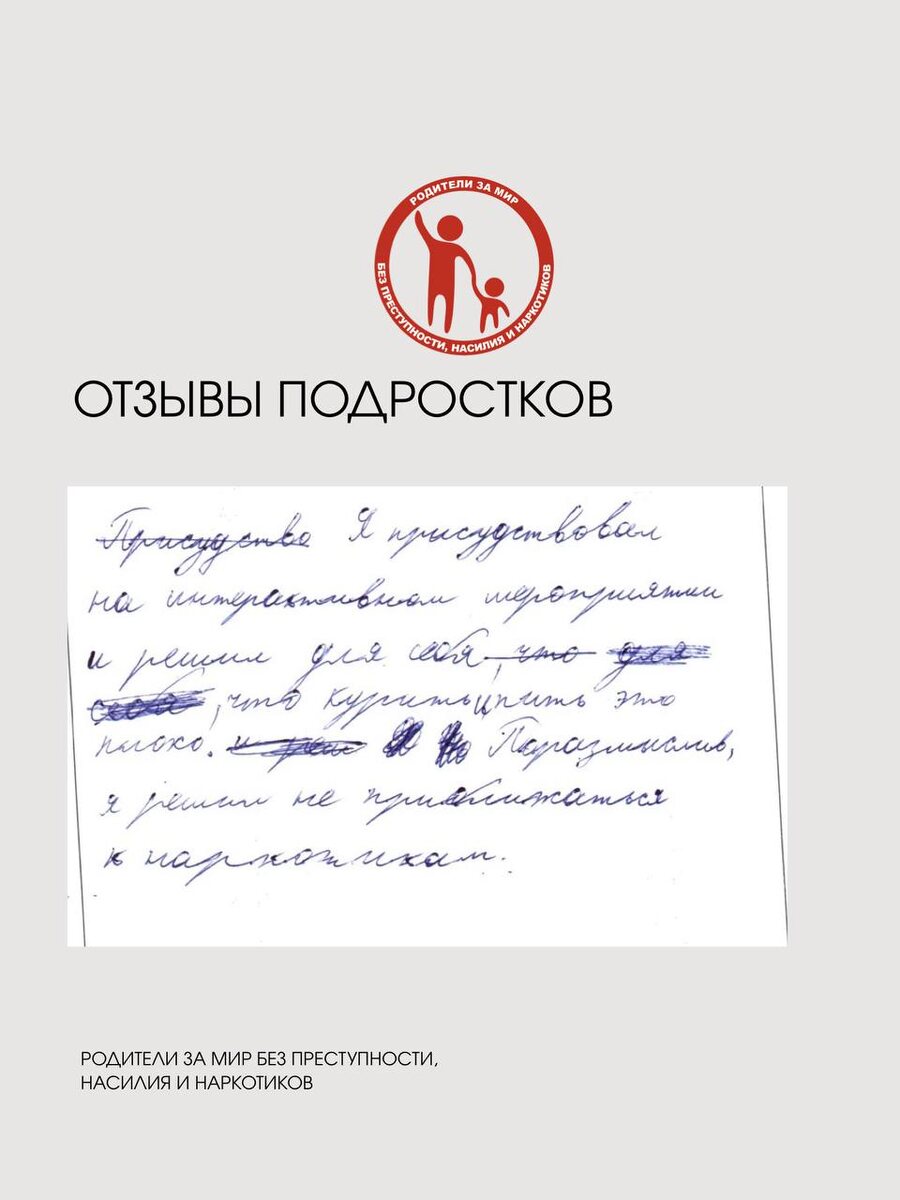 РОДИТЕЛИ ЗА МИР
БЕЗ ПРЕСТУПНОСТИ, НАСИЛИЯ И НАРКОТИКОВ
ОТЗЫВЫ ПОДРОСТКОВ
Присудство Я присудствовал
на интерактивном мероприятии
и решил для себя, что для
себя, что курить и пить это
плохо. и реш Я Но Поразмыслив,
я решил не приближаться
к наркотикам.
РОДИТЕЛИ ЗА МИР БЕЗ ПРЕСТУПНОСТИ,
НАСИЛИЯ И НАРКОТИКОВ